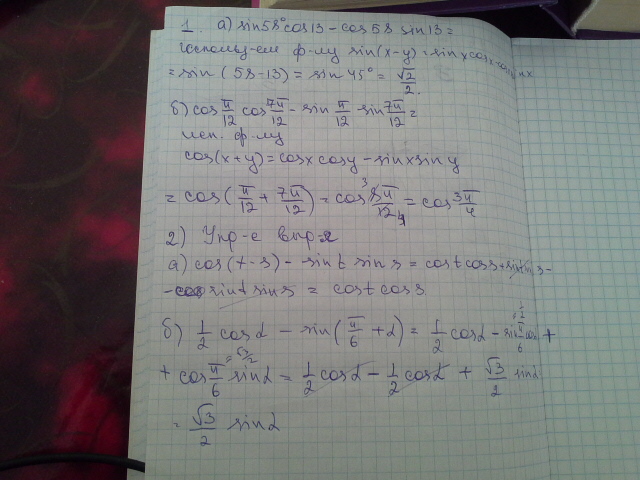 1. а) sin58° cos13 - cos58 sin13 =
используем ф-лу sin(x-y) = sinx cosx
= sin (58-13) = sin 45° = √2/2.
б) cos π/12 cos 7π/12 - sin π/12 sin 7π/12 =
исп. ф-лу
cos(x+y) = cosx cosy - sinx sin y
= cos(π/12 + 7π/12) = cos 8π/12 = cos 3π/4
2) Упр-е выр-е
а) cos(t-s) - sint sin s = cost coss + sint sin s -
- sint sins = cost coss
б) 1/2 cosα - sin(π/6 + α) = 1/2 cosα - sin π/6 cosα +
+ cos π/6 sinα = 1/2 cosα - 1/2 cosα + √3/2 sinα
= √3/2 sinα